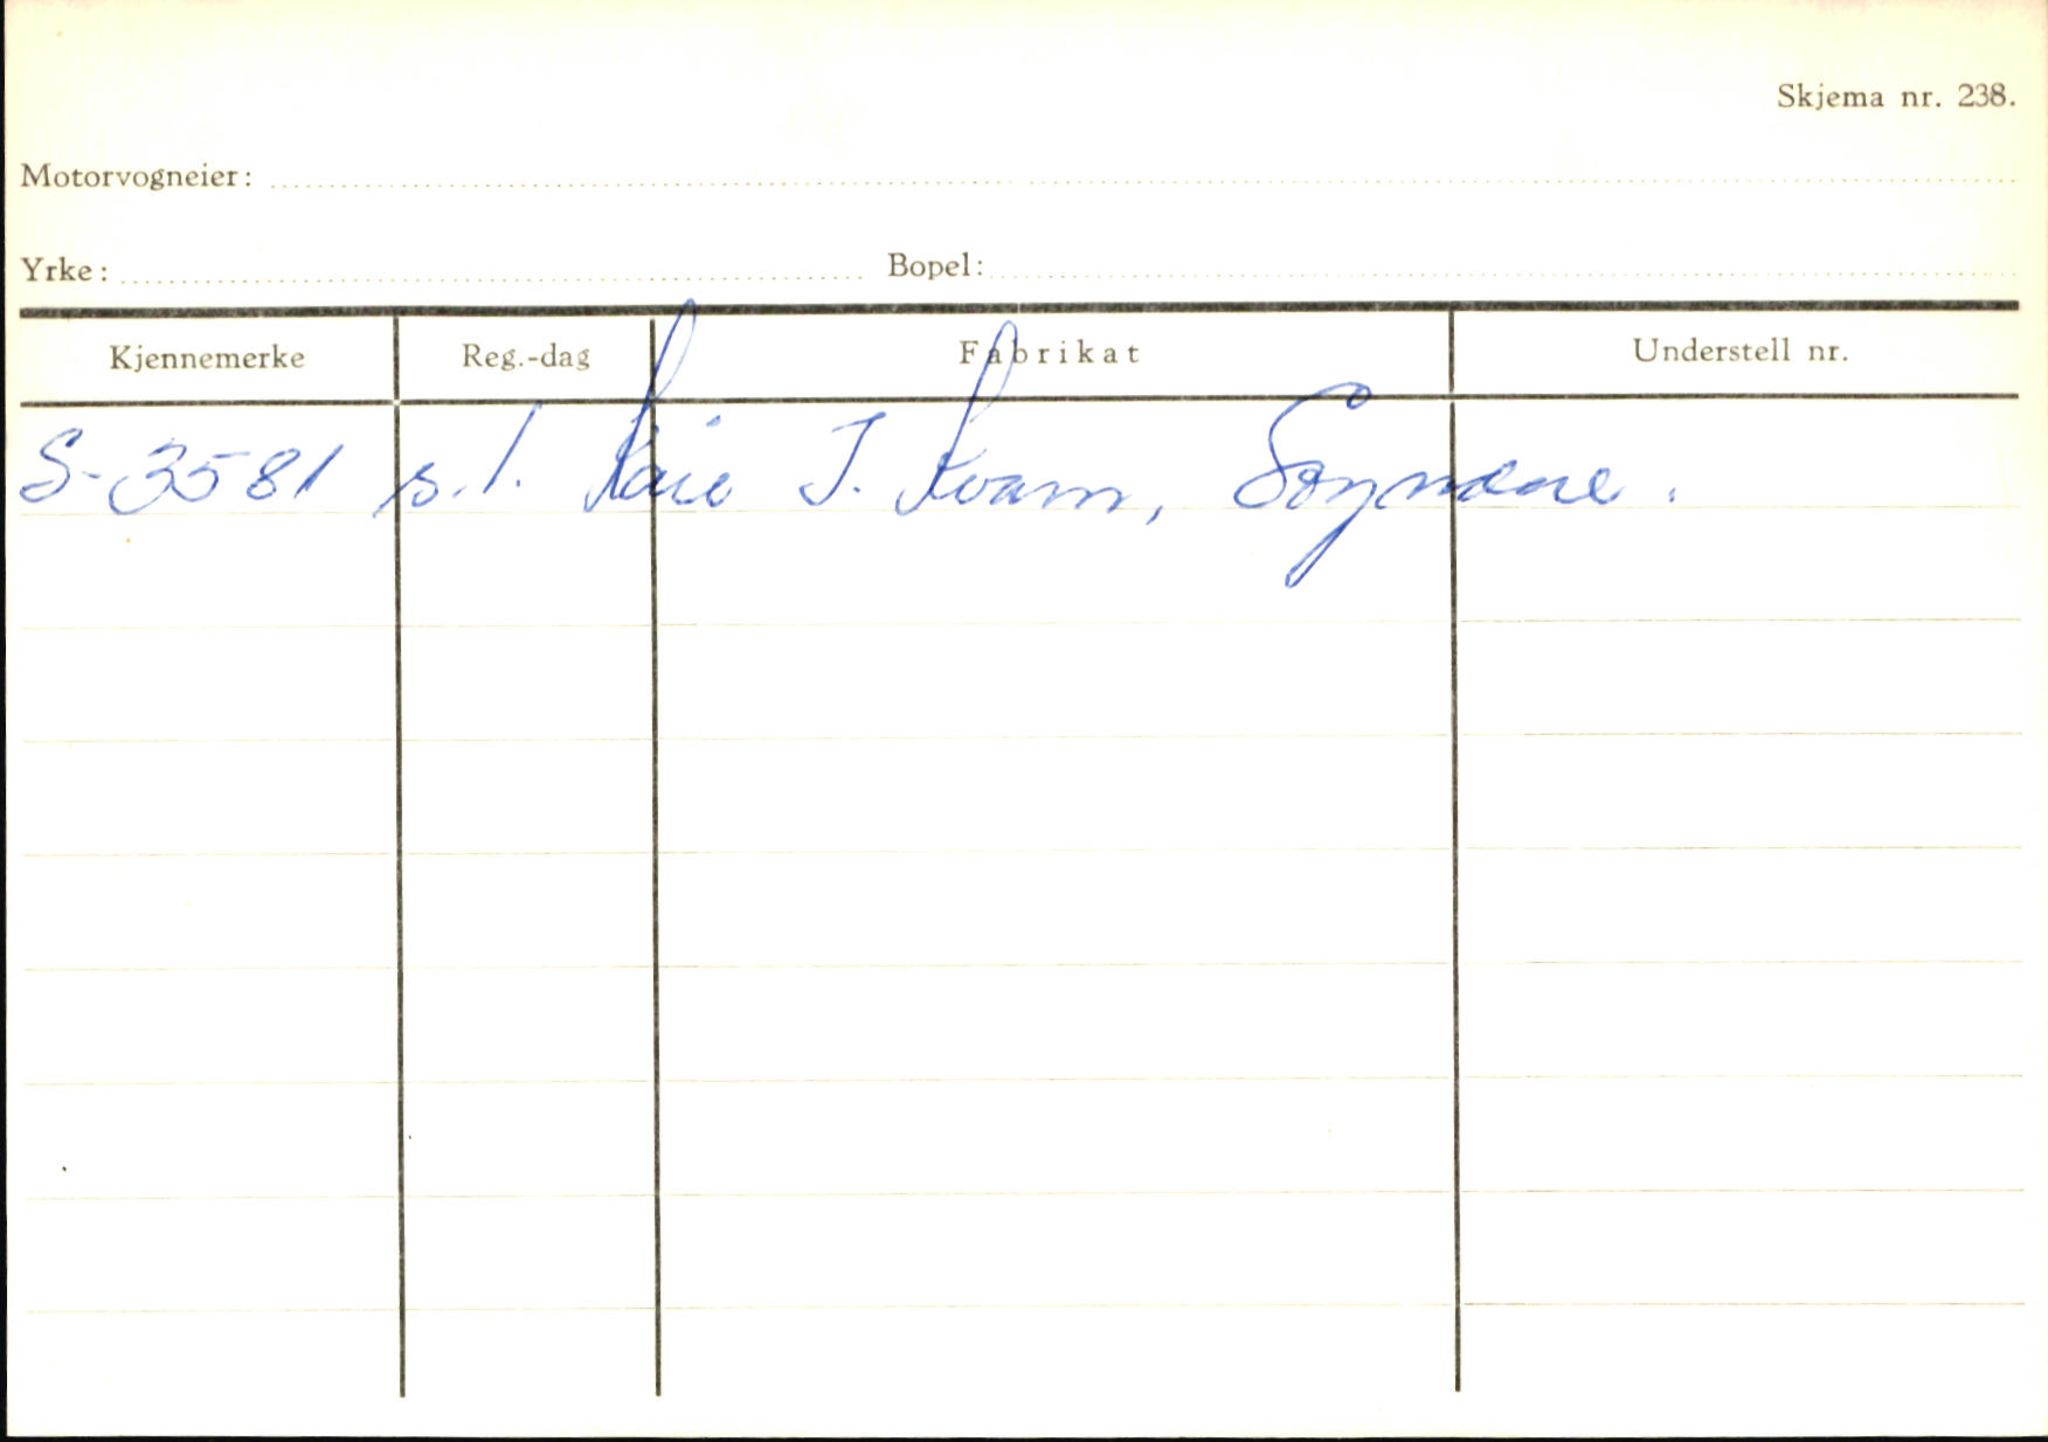 Skjema nr. 238.
Motorvogneier:
Yrke: Bopel:
Kjennemerke Reg.-dag Fabrikat Understell nr.
S-3581 s.l. J. Kvam,